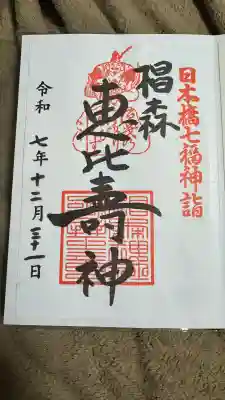 日本橋七福神詣
椙森
恵比壽神
令和七年十二月三十一日